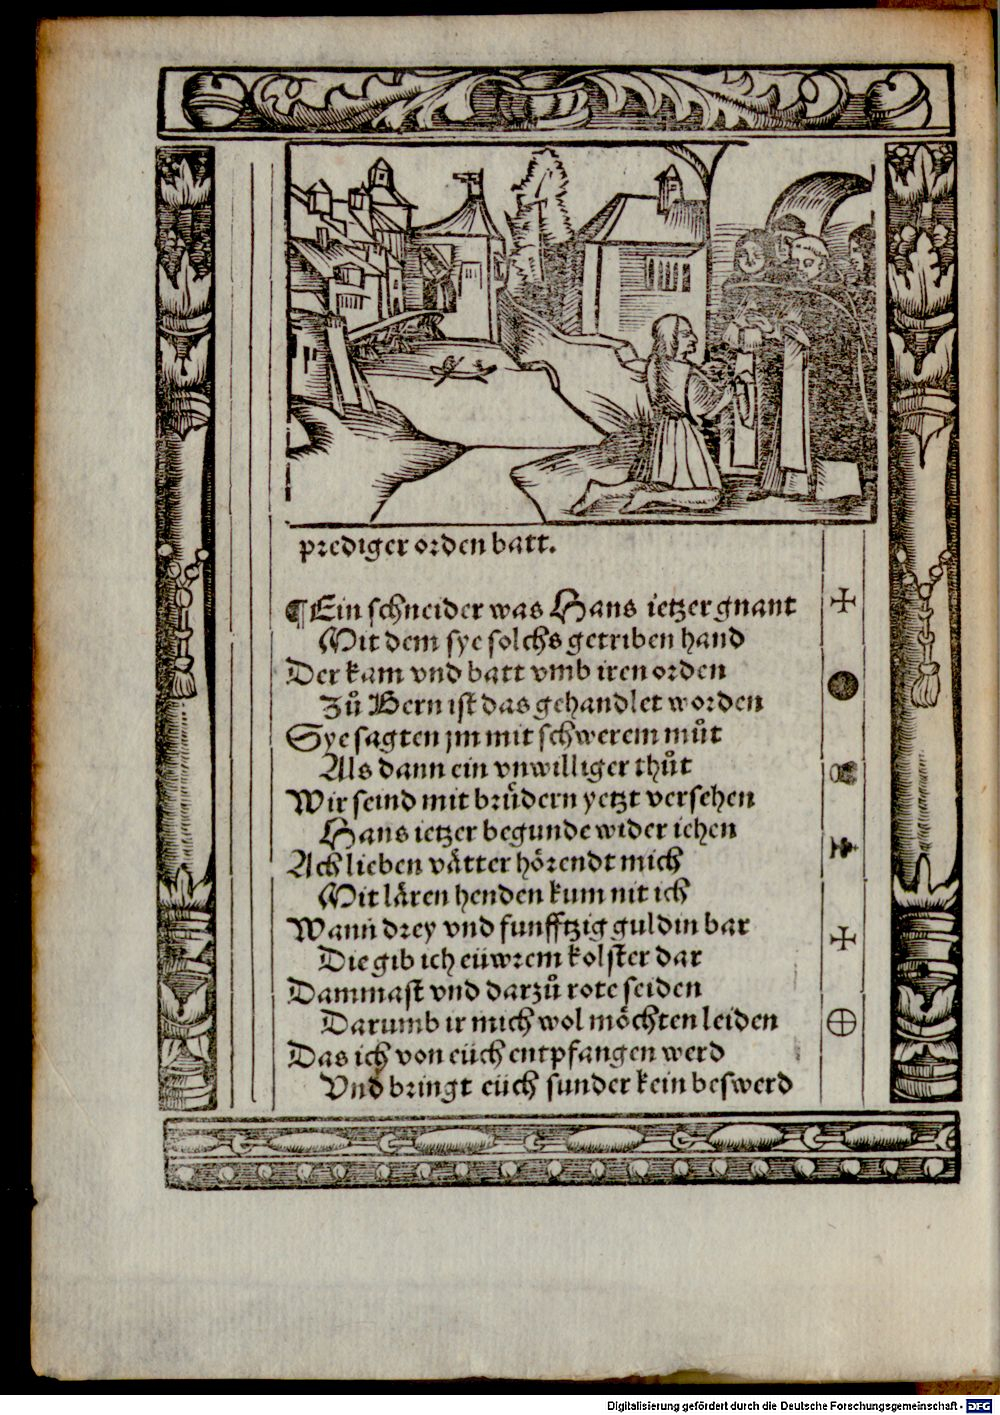 prediger orden batt.
¶Ein schneider was Hans ietzer gnant
Mit dem sye solchs getriben hand
Der kam vnd batt vmb iren orden
Zů Bern ist das gehandlet worden
Sye sagten jm mit schwerem můt
Als dann ein vnwilliger thůt
Wir seind mit brüdern yetzt versehen
Hans ietzer begunde wider iehen
Ach lieben vätter hörendt mich
Mit lären henden kum nit ich
Wann drey vnd funfftzig guldin bar
Die gib ich eüwrem kolster dar
Dammast vnd darzů rote seiden
Darumb ir mich wol möchten leiden
Das ich von eüch entpfangen werd
Vnd bringt eüch sunder kein beswerd
Digitalisierung gefördert durch die Deutsche Forschungsgemeinschaft - DFG